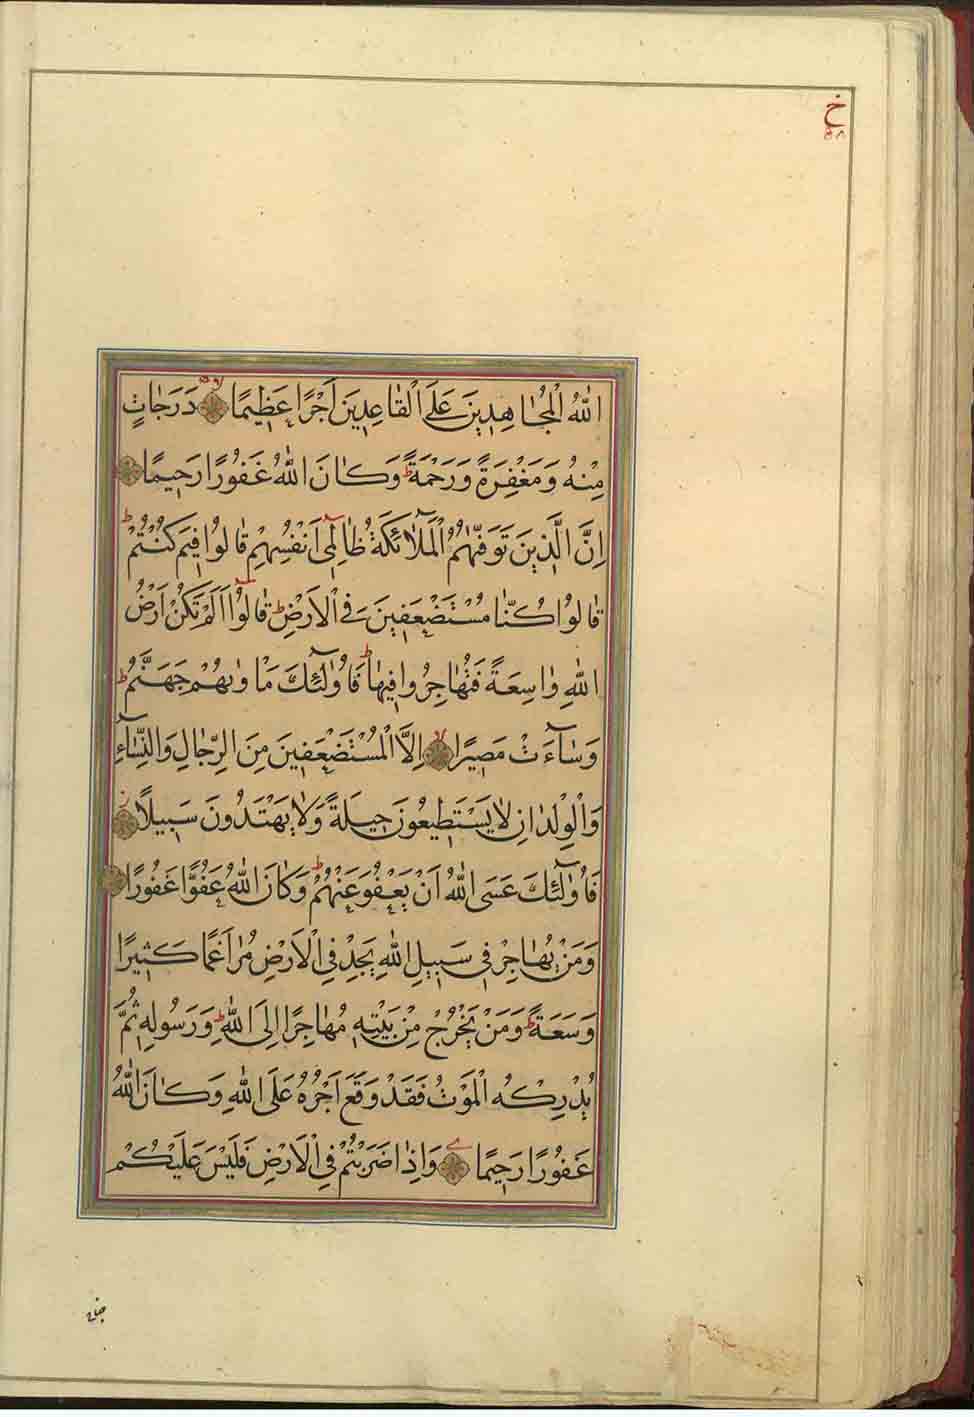 خ
اللّٰهُ الْمُجٰاهِدِينَ عَلَى الْقٰاعِدِينَ اَجْرًا عَظِيمًا دَرَجٰاتٍ
مِنْهُ وَمَغْفِرَةً وَرَحْمَةً ط وَكٰانَ اللّٰهُ غَفُورًا رَحِيمًا
اِنَّ الَّذِينَ تَوَفّٰيهُمُ الْمَلٰٓائِكَةُ ظٰالِمِٓى اَنْفُسِهِمْ قٰالُوا فِيمَ كُنْتُمْ ط
قٰالُوا كُنّٰا مُسْتَضْعَفِينَ فِى الْاَرْضِ ط قٰالُوٓا اَلَمْ تَكُنْ اَرْضُ
اللّٰهِ وٰاسِعَةً فَتُهٰاجِرُوا فِيهٰا ط فَاُولٰٓئِكَ مَاْوٰيهُمْ جَهَنَّمُ ط
وَسٰٓاءَتْ مَصِيرًا لا اِلَّا الْمُسْتَضْعَفِينَ مِنَ الرِّجٰالِ وَالنِّسٰٓاءِ
وَالْوِلْدٰانِ لٰا يَسْتَطِيعُونَ حِيلَةً وَلٰا يَهْتَدُونَ سَبِيلًا
فَاُولٰٓئِكَ عَسَى اللّٰهُ اَنْ يَعْفُوَ عَنْهُمْ ط وَكٰانَ اللّٰهُ عَفُوًّا غَفُورًا
وَمَنْ يُهٰاجِرْ فِى سَبِيلِ اللّٰهِ يَجِدْ فِى الْاَرْضِ مُرٰاغَمًا كَثِيرًا
وَسَعَةً ط وَمَنْ يَخْرُجْ مِنْ بَيْتِهِ مُهٰاجِرًا اِلَى اللّٰهِ وَرَسُولِهِ ثُمَّ
يُدْرِكْهُ الْمَوْتُ فَقَدْ وَقَعَ اَجْرُهُ عَلَى اللّٰهِ وَكٰانَ اللّٰهُ
غَفُورًا رَحِيمًا وَاِذٰا ضَرَبْتُمْ فِى الْاَرْضِ فَلَيْسَ عَلَيْكُمْ